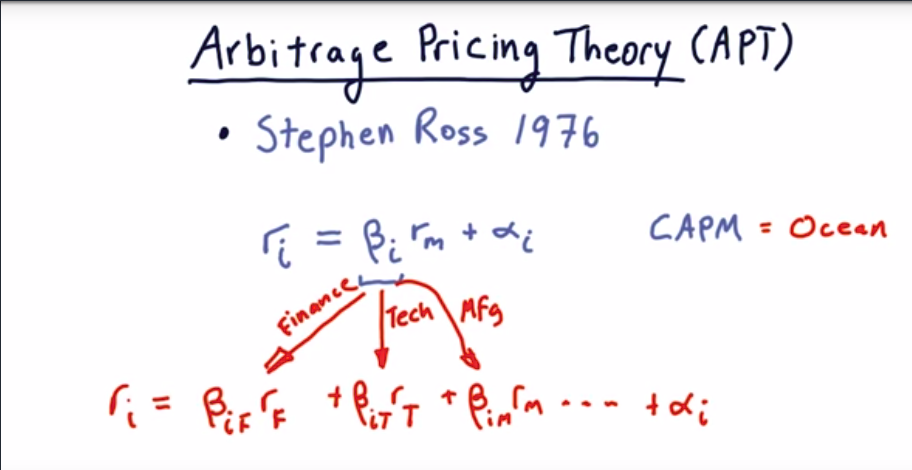 Arbitrage Pricing Theory (APT)
• Stephen Ross 1976
rᵢ = βᵢ rₘ + αᵢ CAPM = Ocean
Finance Tech Mfg
rᵢ = β_iF r_F + β_iT r_T + β_iM r_m ---- + αᵢ